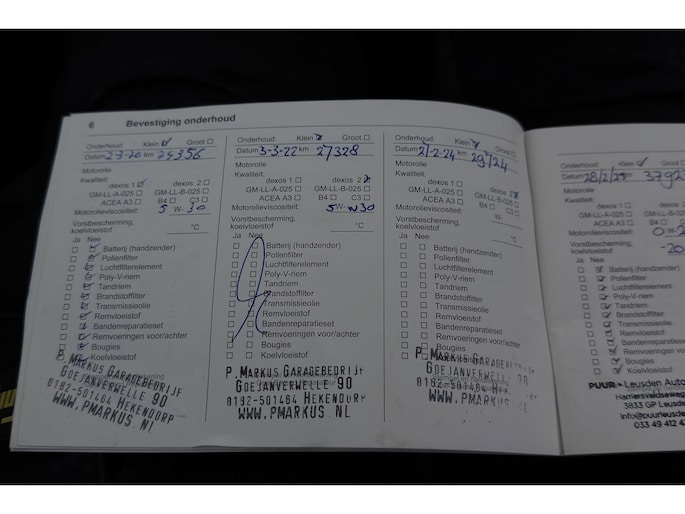 6 Bevestiging onderhoud
Onderhoud: Klein Groot
Datum 2-3-20 km 24356
Motorolie
Kwaliteit:
dexos 1 dexos 2
GM-LL-A-025 GM-LL-B-025
ACEA A3 B4 C3
Motorolieviscositeit: 5 W- 30
Vorstbescherming,
koelvloeistof °C
Ja Nee
Batterij (handzender)
Pollenfilter
Luchtfilterelement
Poly-V-riem
Tandriem
Brandstoffilter
Transmissieolie
Remvloeistof
Bandenreparatieset
Remvoeringen voor/achter
Bougies
Koelvloeistof
P. MARKUS GARAGEBEDRIJF
GOEJANVERWELLE 90
0182-501464 HEKENDORP
WWW.PMARKUS.NL
Onderhoud: Klein Groot
Datum 3-3-22 km 27328
Motorolie
Kwaliteit:
dexos 1 dexos 2
GM-LL-A-025 GM-LL-B-025
ACEA A3 B4 C3
Motorolieviscositeit: 5 W- W30
Vorstbescherming,
koelvloeistof °C
Ja Nee
Batterij (handzender)
Pollenfilter
Luchtfilterelement
Poly-V-riem
Tandriem
Brandstoffilter
Transmissieolie
Remvloeistof
Bandenreparatieset
Remvoeringen voor/achter
Bougies
Koelvloeistof
P. MARKUS GARAGEBEDRIJF
GOEJANVERWELLE 90
0182-501464 HEKENDORP
WWW.PMARKUS.NL
Onderhoud: Klein Groot
Datum 21-2-24 km 29724
Motorolie
Kwaliteit:
dexos 1 dexos 2
GM-LL-A-025 GM-LL-B-025
ACEA A3 B4 C3
Motorolieviscositeit: W-
Vorstbescherming,
koelvloeistof °C
Ja Nee
Batterij (handzender)
Pollenfilter
Luchtfilterelement
Poly-V-riem
Tandriem
Brandstoffilter
Transmissieolie
Remvloeistof
Bandenreparatieset
Remvoeringen voor/achter
Bougies
Koelvloeistof
P. MARKUS GARAGE
GOEJANVERWELLE 90
0182-501464 HEKEND
WWW.PMARKUS.NL
Onderhoud: Klein Groot
Datum 28/2/25 km 3792
Motorolie
Kwaliteit:
dexos 1
GM-LL-A-025 GM-LL-B
ACEA A3 B4
Motorolieviscositeit: 0
Vorstbescherming,
koelvloeistof -20
Ja Nee
Batterij (handzender)
Pollenfilter
Luchtfilterelement
Poly-V-riem
Tandriem
Brandstoffilter
Transmissieolie
Remvloeistof
Bandenreparatieset
Remvoeringen voor/ach
Bougies
Koelvloeistof
PUUR Leusden Auto
Hamersveldseweg
3833 GP Leusd
info@puurleusde
033 49 412 4